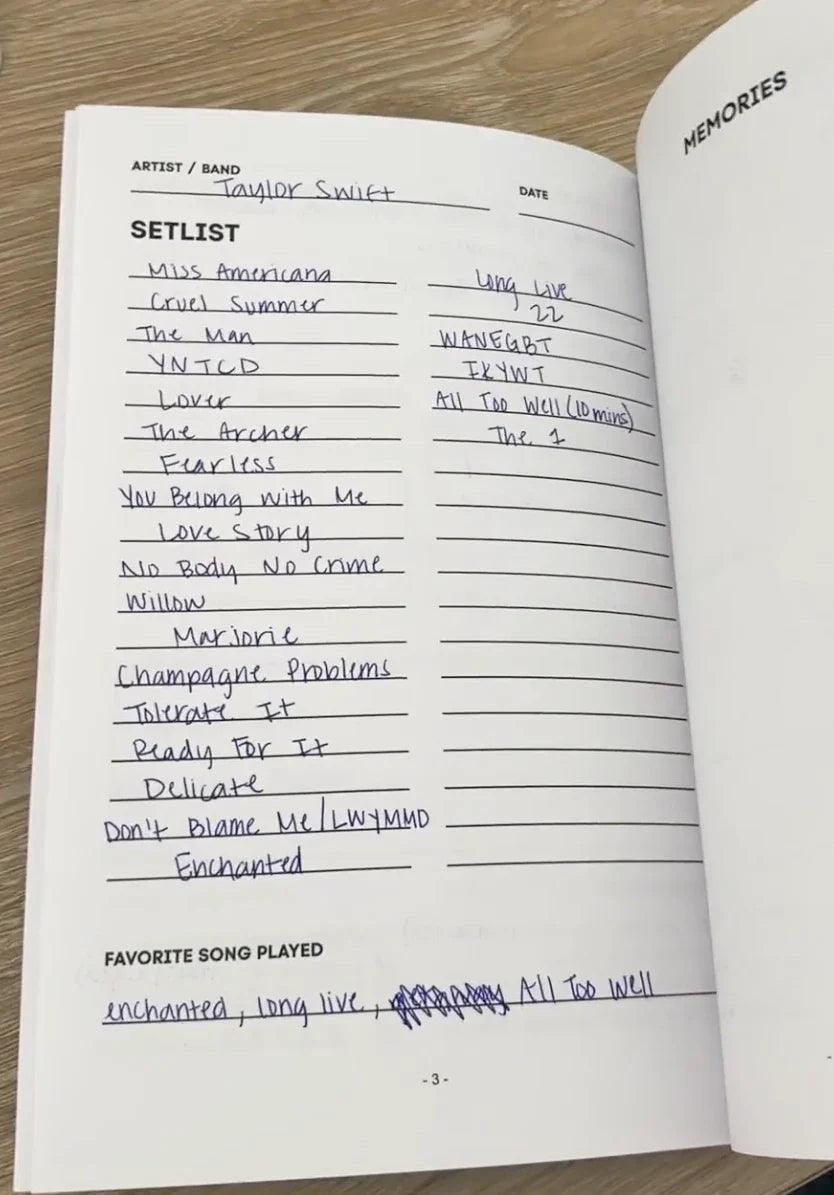 MEMORIES
ARTIST / BAND
Taylor Swift
DATE
SETLIST
Miss Americana
Cruel Summer
The Man
YNTCD
Lover
The Archer
Fearless
You Belong with Me
Love Story
No Body No Crime
Willow
Marjorie
Champagne Problems
Tolerate It
Ready For It
Delicate
Don't Blame Me/LWYMMD
Enchanted
Long Live
22
WANEGBT
IKYWT
All Too Well (10 mins)
The 1
FAVORITE SONG PLAYED
enchanted, long live, All Too Well
- 3 -